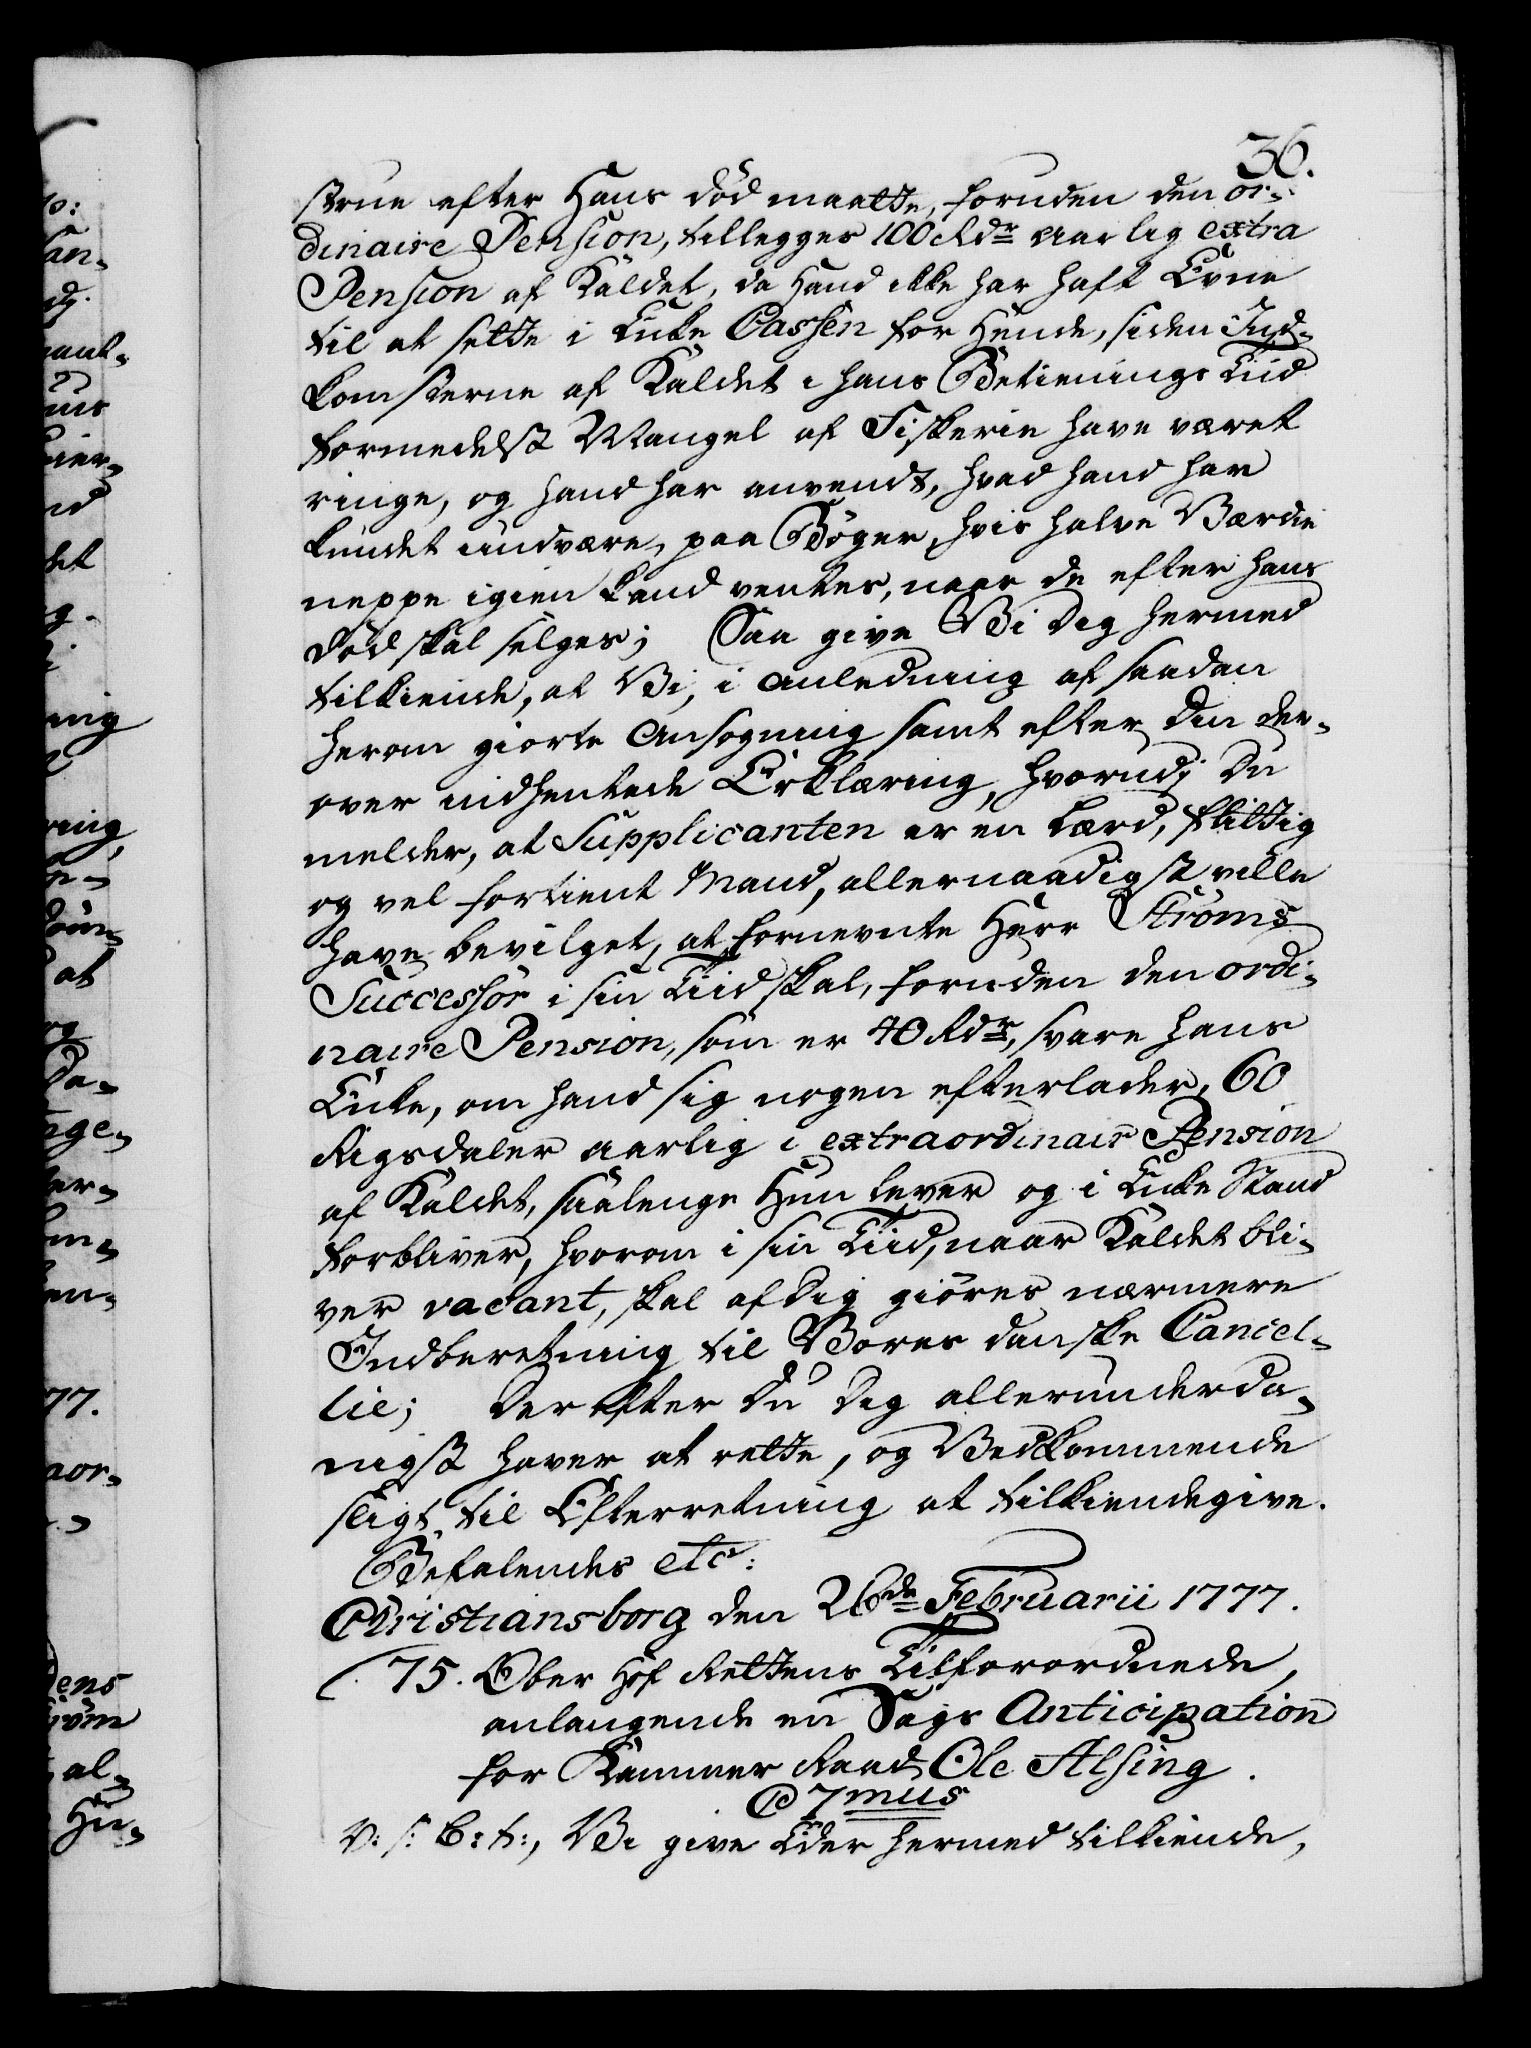 36.
strue efter Hans død maatte, foruden den or-
dinaire Pension, tillegges 100 Rdr aarlig extra
Pension af Kaldet, da Hand ikke har haft Evne
til at sette i Enke Cassen for Hende, siden Ind-
komsterne af Kaldet i hans Betienings Tiid
formedelst Mangel af Fiskerie have været
ringe, og hand har anvendt, hvad hand har
kundet undvære, paa Bøger, hvis halve Værdie
neppe igien kand ventes, naar de efter hans
død skal selges; Saa give Vi dig hermed
tilkiende, at Vi, i anledning af saadan
herom giorte Ansøgning samt efter din der-
over indhentede Erklæring, hvorudj du
melder, at Supplicanten er en lærd, flittig
og vel fortient Mand, allernaadigst ville
have bevilget, at fornevnte Herr Strøms
Successor i sin Tiid skal, foruden den ordi-
naire Pension, som er 40 Rdr, svare hans
Enke, om hand sig nogen efterlader, 60
Rigsdaler aarlig i extraordinair Pension
af Kaldet, saalenge Hun lever og i Enke Stand
forbliver, hvorom i sin Tiid, naar Kaldet bli-
ver vacant, skal af dig giøres nærmere
Indberetning til Vores danske Cancel-
lie; Derefter du dig allerunderda-
nigst haver at rette, og Vedkommende
sligt til Efterretning at tilkiendegive.
Befalendes etc:
Christiansborg den 26de Februarii 1777.
75. Ober Hof Rettens Tilforordnede,
anlangende en Sags Anticipation
for Kammer Raad Ole Alsing.
C 7mus
V: s: B: t:, Vi give Eder hermed tilkiende,